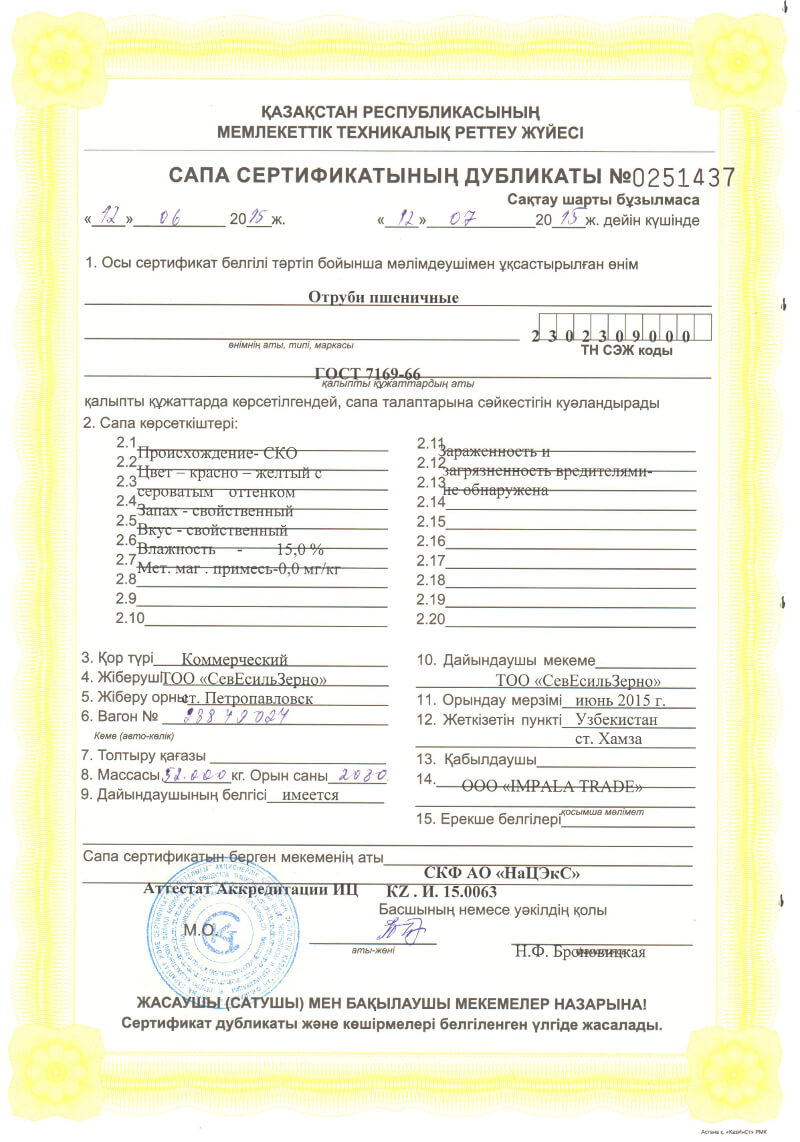 ҚАЗАҚСТАН РЕСПУБЛИКАСЫНЫҢ
МЕМЛЕКЕТТІК ТЕХНИКАЛЫҚ РЕТТЕУ ЖҮЙЕСІ
САПА СЕРТИФИКАТЫНЫҢ ДУБЛИКАТЫ №0251437
Сақтау шарты бұзылмаса
«12» 06 2015ж. «12» 07 2015ж. дейін күшінде
1. Осы сертификат белгілі тәртіп бойынша мәлімдеушімен ұқсастырылған өнім
Отруби пшеничные
2302309000
өнімнің аты, типі, маркасы
ТН СЭЖ коды
ГОСТ 7169-66
қалыпты құжаттардың аты
қалыпты құжаттарда көрсетілгендей, сапа талаптарына сәйкестігін куәландырады
2. Сапа көрсеткіштері:
2.1 Происхождение- СКО
2.2 Цвет – красно – желтый с
2.3 сероватым оттенком
2.4 Запах - свойственный
2.5 Вкус - свойственный
2.6 Влажность - 15,0 %
2.7 Мет. маг . примесь-0,0 мг/кг
2.8
2.9
2.10
2.11 Зараженность и
2.12 загрязненность вредителями-
2.13 не обнаружена
2.14
2.15
2.16
2.17
2.18
2.19
2.20
3. Қор түрі Коммерческий
4. Жіберуші ТОО «СевЕсильЗерно»
5. Жіберу орны ст. Петропавловск
6. Вагон № 28879024
Кеме (авто-көлік)
7. Толтыру қағазы
8. Массасы 52.000 кг. Орын саны 2080
9. Дайындаушының белгісі имеется
10. Дайындаушы мекеме
ТОО «СевЕсильЗерно»
11. Орындау мерзімі июнь 2015 г.
12. Жеткізетін пункті Узбекистан
ст. Хамза
13. Қабылдаушы
14. ООО «IMPALA TRADE»
қосымша мәлімет
15. Ерекше белгілері
Сапа сертификатын берген мекеменің аты
СКФ АО «НаЦЭкС»
Аттестат Аккредитации ИЦ KZ . И. 15.0063
Басшының немесе уәкілдің қолы
М.О.
аты-жөні
Н.Ф. Броновицкая
ЖАСАУШЫ (САТУШЫ) МЕН БАҚЫЛАУШЫ МЕКЕМЕЛЕР НАЗАРЫНА!
Сертификат дубликаты және көшірмелері белгіленген үлгіде жасалады.
Астана қ. «ҚазИнСт» РМК